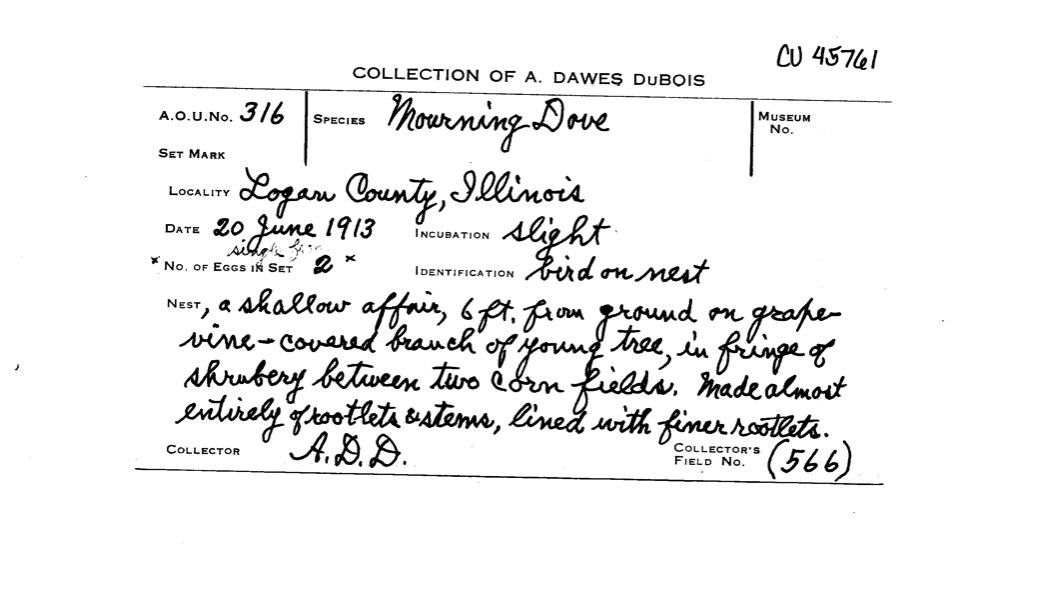 CU 45761
COLLECTION OF A. DAWES DuBOIS
A.O.U.No. 316 SPECIES Mourning Dove MUSEUM No.
SET MARK
LOCALITY Logan County, Illinois
DATE 20 June 1913 INCUBATION slight
single
x No. OF EGGS IN SET 2 x IDENTIFICATION bird on nest
NEST, a shallow affair, 6 ft. from ground on grape-
vine-covered branch of young tree, in fringe of
shrubery between two corn fields. Made almost
entirely of rootlets & stems, lined with finer rootlets.
COLLECTOR A.D.D. COLLECTOR'S FIELD No. (566)